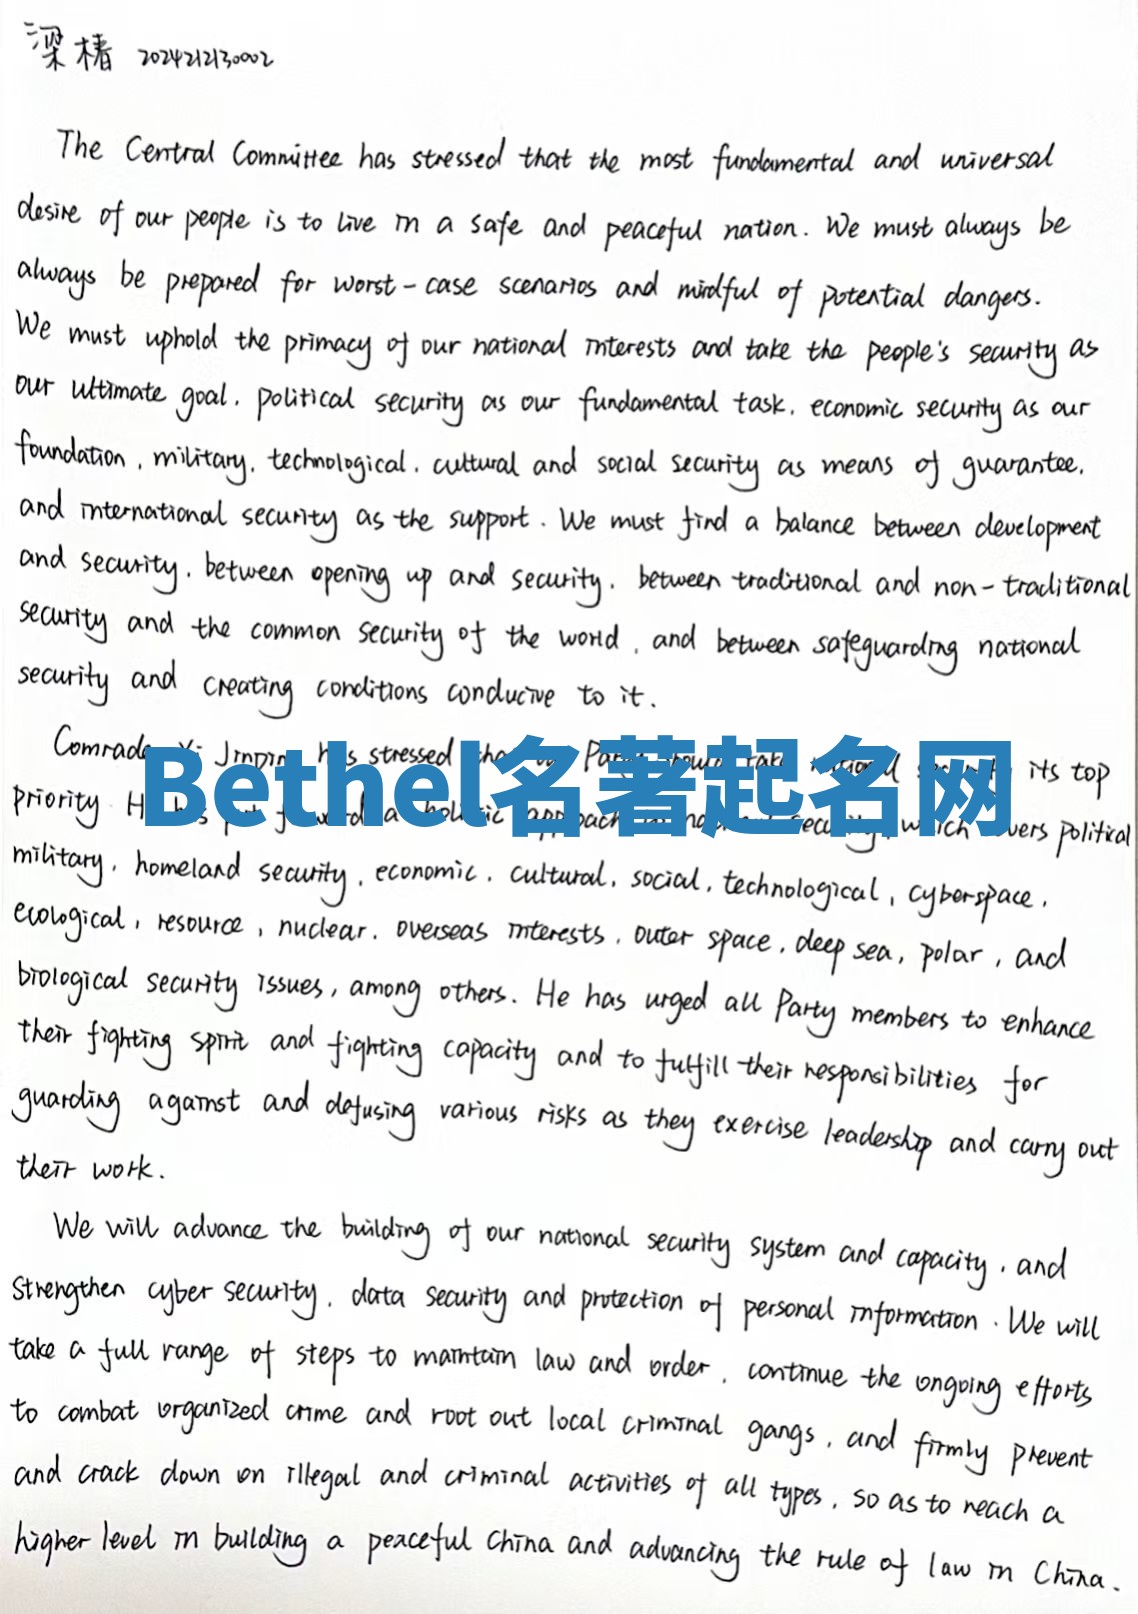 梁椿 2024212130002
The Central Committee has stressed that the most fundamental and universal
desire of our people is to live in a safe and peaceful nation. We must always be
always be prepared for worst-case scenarios and mindful of potential dangers.
We must uphold the primacy of our national interests and take the people's security as
our ultimate goal, political security as our fundamental task, economic security as our
foundation, military, technological, cultural and social security as means of guarantee,
and international security as the support. We must find a balance between development
and security, between opening up and security, between traditional and non-traditional
security and the common security of the world, and between safeguarding national
security and creating conditions conducive to it.
Comrade Xi Jinping has stressed that Party should take national security its top
Bethel名著起名网
priority He has put forward a holistic approach national security, which covers political
military, homeland security, economic, cultural, social, technological, cyberspace,
ecological, resource, nuclear, overseas interests, outer space, deep sea, polar, and
biological security issues, among others. He has urged all Party members to enhance
their fighting spirit and fighting capacity and to fulfill their responsibilities for
guarding against and defusing various risks as they exercise leadership and carry out
their work.
We will advance the building of our national security system and capacity, and
strengthen cyber security, data security and protection of personal information. We will
take a full range of steps to maintain law and order, continue the ongoing efforts
to combat organized crime and root out local criminal gangs, and firmly prevent
and crack down on illegal and criminal activities of all types, so as to reach a
higher level in building a peaceful China and advancing the rule of law in China.